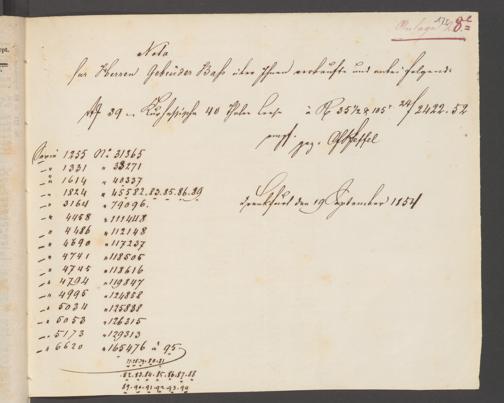 Anlage 28
Nota
für Herren Gebrüder Bass über Ihnen verkaufte und anbei folgende
39 Kurhessische 40 Thaler Loose à 35 1/2 & 105 f 2422.52
Frankfurt den 19 September 1854
Serie 1255 No 31365
1331 " 33271
1614 " 40337
1824 " 45582.83.85.86.89
3164 " 79096.
4458 " 111448
4486 " 112148
4690 " 117237
4741 " 118505
4745 " 118616
4794 " 119847
4995 " 124858
5034 " 125838
5053 " 126315
5173 " 129313
6620 " 165476 à 95
82.83.84.85.86.87.88
89.90.91.92.93.94